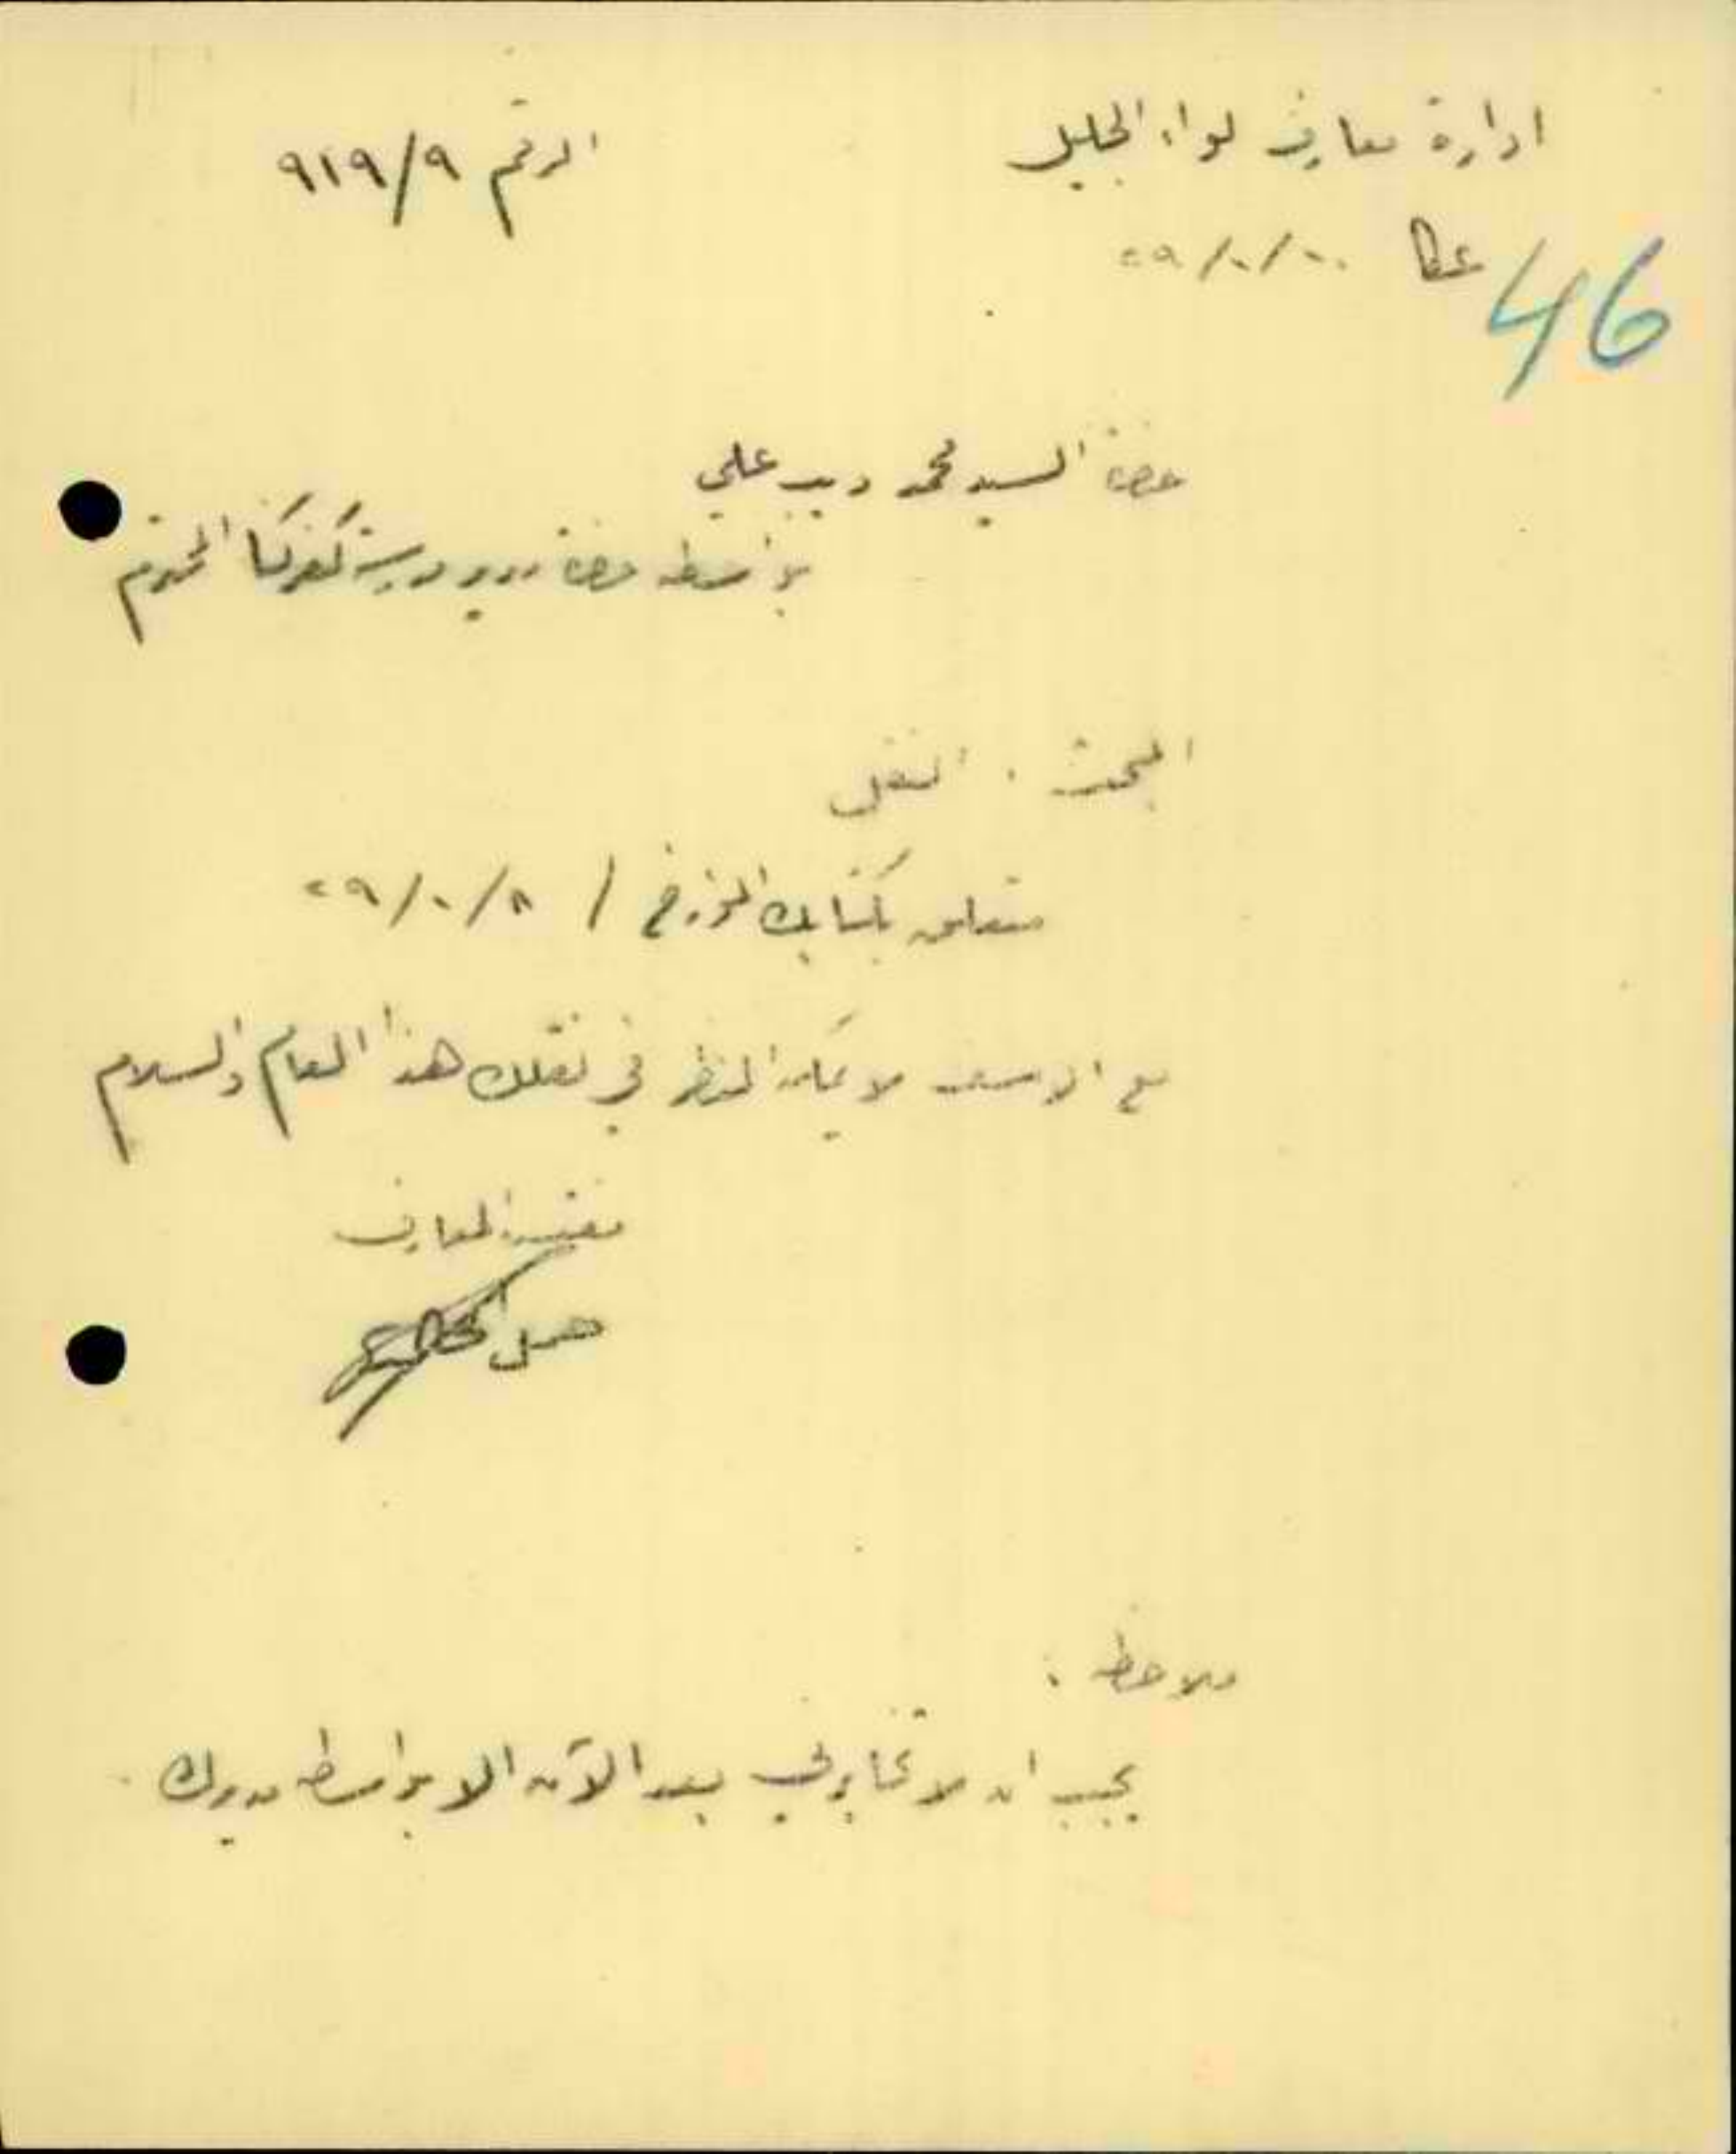 ادارة معارف لواء الجليل
الرقم ٩١٩/٩
عكا ٢٩/١٠/١٠
46
حضرة السيد محمد ديب علي
بواسطة حضرة مدير مدرسة كفركنا المحترم
المبحث : النقل
متعلق بكتابك المؤرخ / ٢٩/١٠/٨
مع الاسف لا يمكن النظر في نقلك هذا العام والسلام
مفتش المعارف
ملاحظة :
يجب ان لا تخابرني بعد الآن الا بواسطة مديرك